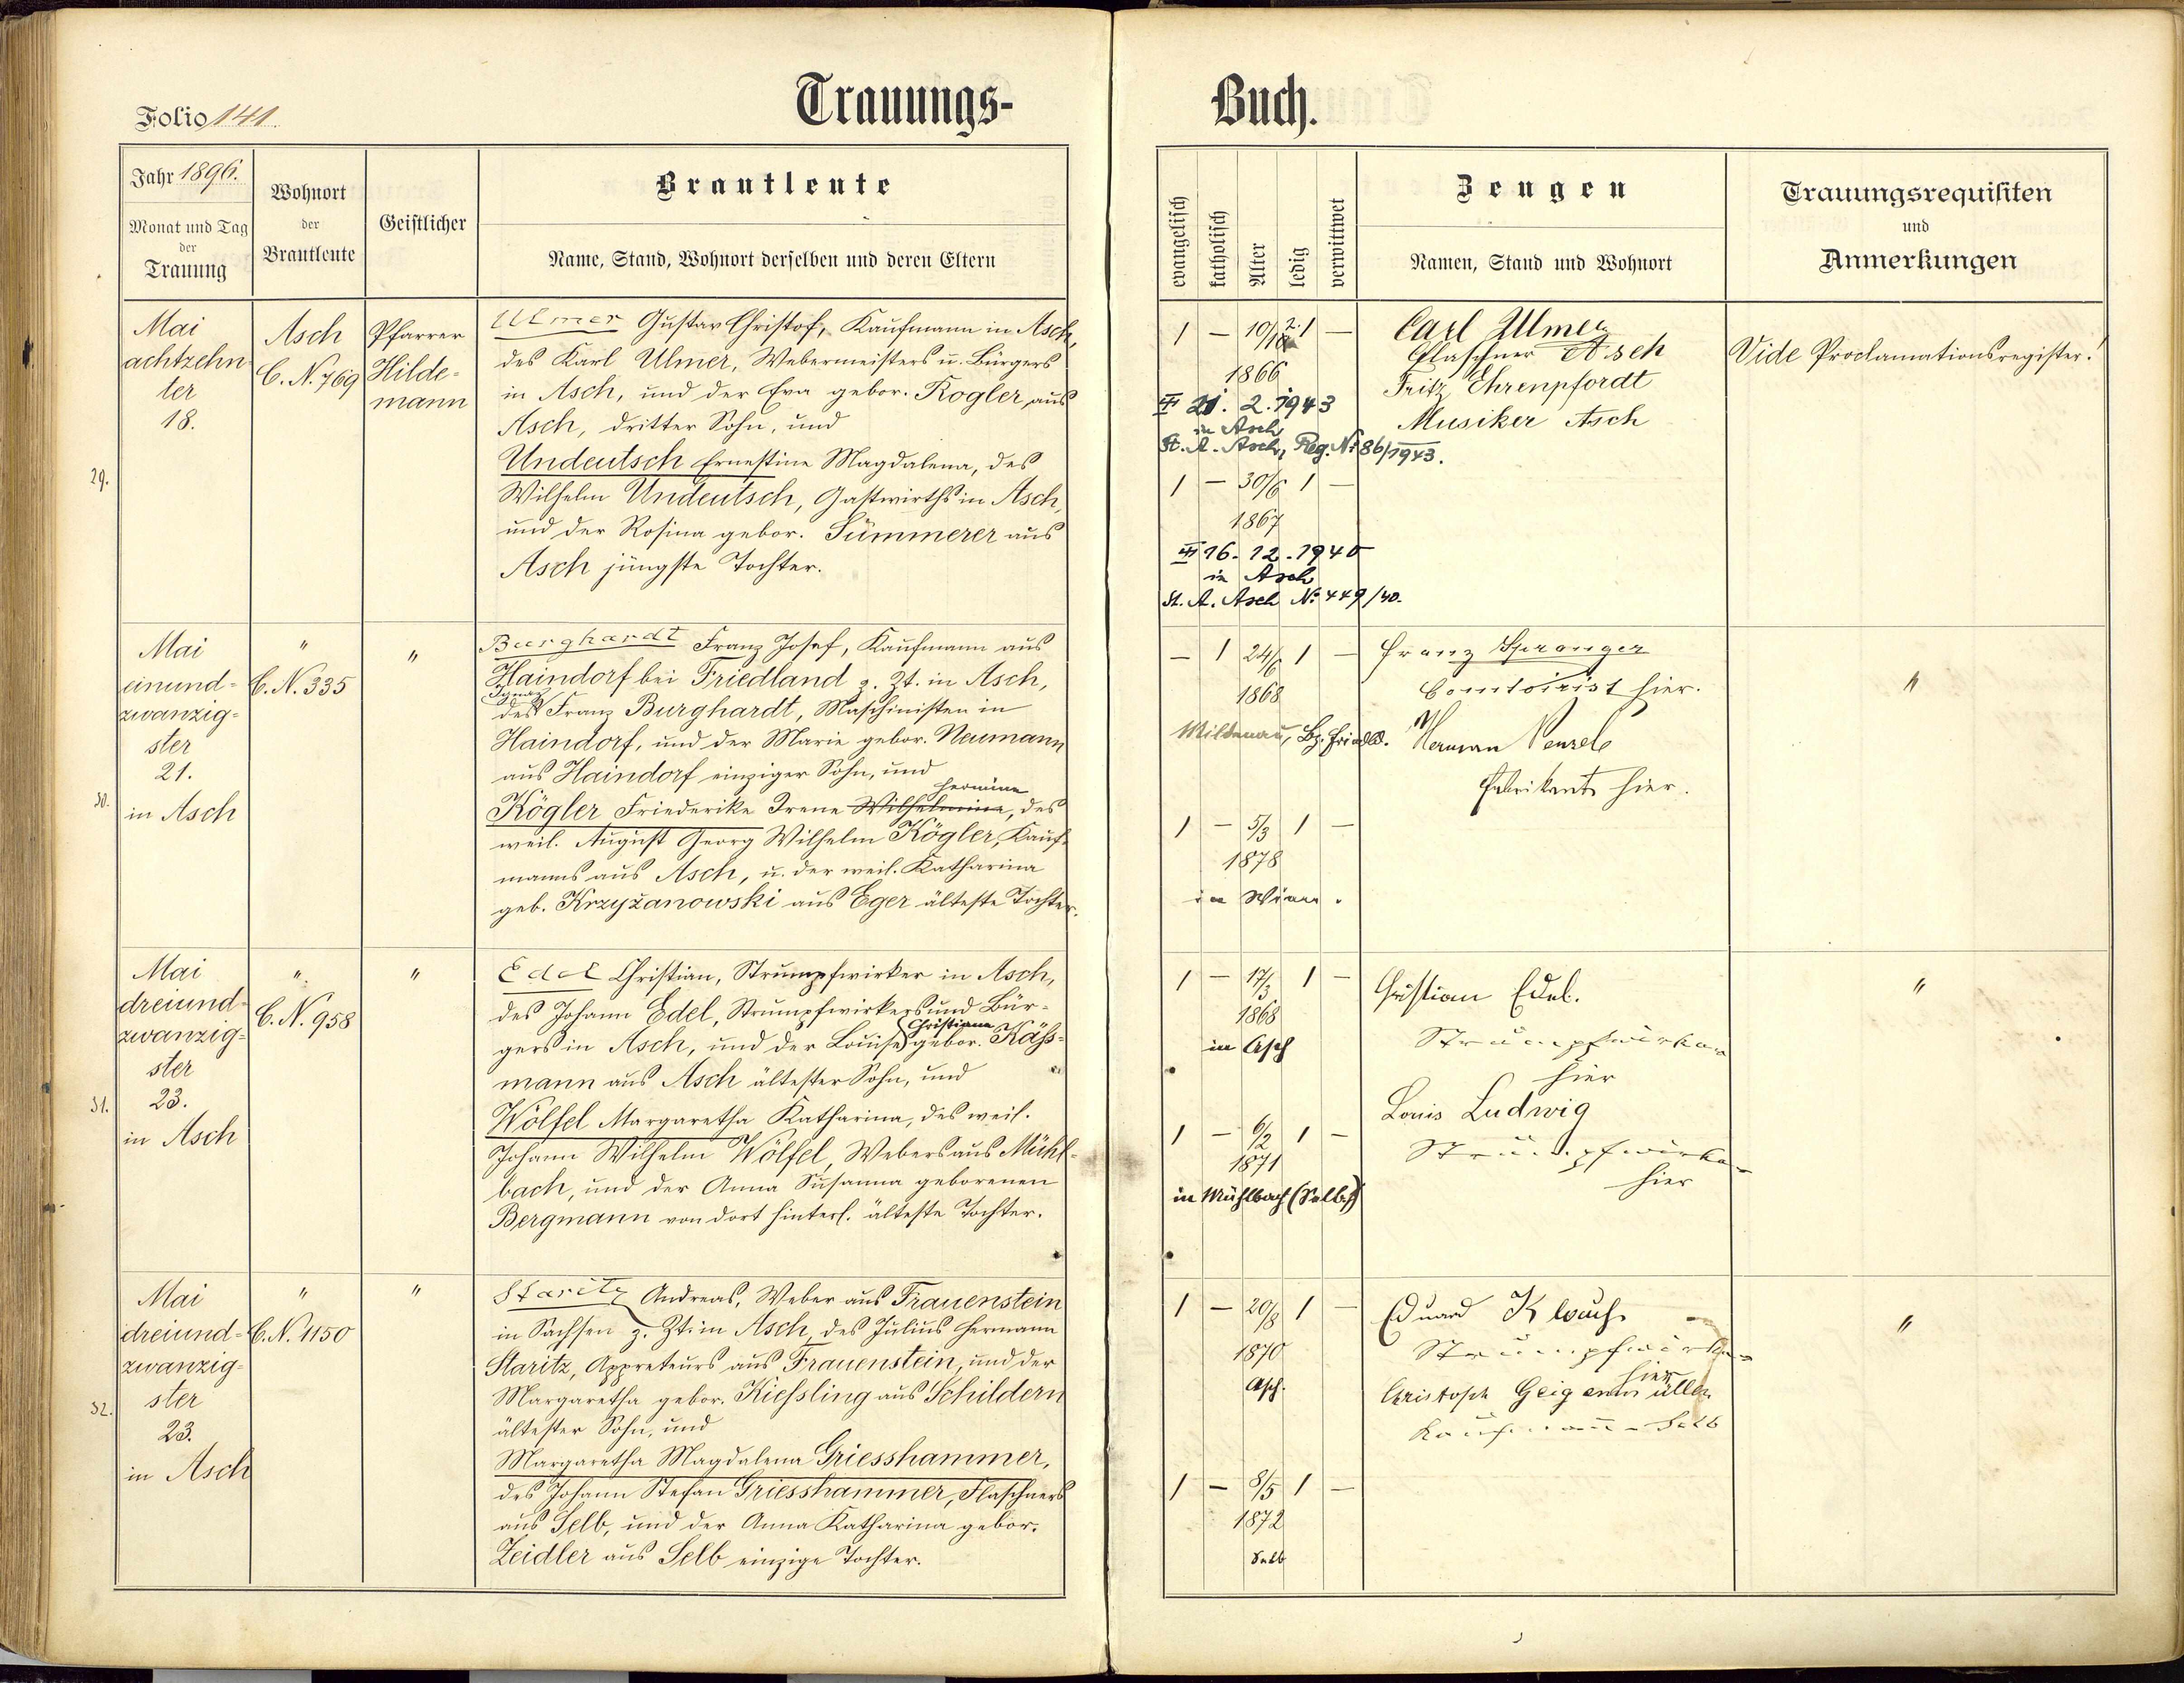 Folio 141.
Trauungs-
Jahr 1896.
Monat und Tag
der
Trauung
Wohnort
der
Brautleute
Geistlicher
Brautleute
Name, Stand, Wohnort derselben und deren Eltern
29.
Mai
achtzehn-
ter
18.
Asch
C. N. 769
Pfarrer
Hilde-
mann
Ulmer Gustav Christof, Kaufmann in Asch,
des Karl Ulmer, Webermeisters u. Bürgers
in Asch, und der Eva gebor. Kogler aus
Asch, dritter Sohn, und
Undeutsch Ernestine Magdalena, des
Wilhelm Undeutsch, Gastwirths in Asch,
und der Rosina gebor. Sümmerer aus
Asch jüngste Tochter.
30.
Mai
einund-
zwanzig-
ster
21.
in Asch
"
C. N. 335
"
Burghardt Franz Josef, Kaufmann aus
Haindorf bei Friedland z. Zt. in Asch,
Ignaz
des Franz Burghardt, Maschinisten in
Haindorf, und der Marie gebor. Neumann
aus Haindorf einziger Sohn, und
Hermine
Kögler Friederike Irene Wilhelmine, des
weil. August Georg Wilhelm Kögler, Kauf-
manns aus Asch, u. der weil. Katharina
geb. Krzyżanowski aus Eger älteste Tochter.
31.
Mai
dreiund-
zwanzig-
ster
23.
in Asch
"
C. N. 958
"
Edel Christian, Strumpfwirker in Asch,
des Johann Edel, Strumpfwirkers und Bür-
Christiane
gers in Asch, und der Louise gebor. Käss-
mann aus Asch ältester Sohn, und
Wölfel Margaretha Katharina, des weil.
Johann Wilhelm Wölfel, Webers aus Mühl-
bach, und der Anna Susanna geborenen
Bergmann von dort hinterl. älteste Tochter.
32.
Mai
dreiund-
zwanzig-
ster
23.
in Asch
"
C. N. 1150
"
Staritz Andreas, Weber aus Frauenstein
in Sachsen z. Zt. in Asch, des Julius Hermann
Staritz, Appreteurs aus Frauenstein, und der
Margaretha gebor. Kiessling aus Schildern
ältester Sohn, und
Margaretha Magdalena Griesshammer,
des Johann Stefan Griesshammer, Flaschners
aus Selb, und der Anna Katharina gebor.
Zeidler aus Selb einzige Tochter.
Buch.
evangelisch
katholisch
Alter
ledig
verwittwet
Zeugen
Namen, Stand und Wohnort
Trauungsrequisiten
und
Anmerkungen
1 — 1 —
1866
21. 2. 1943
in Asch
St. A. Asch, Reg. Nr 86/1943.
1 — 30/6 1 —
1867
16. 12. 1940
in Asch
St. A. Asch Nr 449/40.
Carl Ulmer
Flaschner Asch
Fritz Ehrenpfordt
Musiker Asch
Vide Proclamationsregister!
— 1 24/6 1 —
1868
Mildenau, Bz. Friedld.
1 — 5/3 1 —
1878
in Wien.
Franz Spranger
Comtoirist hier.
Herman Penzel
Fabrikant hier.
"
1 — 17/3 1 —
1868
in Asch
1 — 6/2 1 —
1871
in Mühlbach (Selb)
Christian Edel.
Strumpfwirker
hier
Louis Ludwig
Strumpfwirker
hier
"
1 — 20/8 1 —
1870
Asch.
1 — 8/5 1 —
1872
Selb
Eduard
Strumpfwirker
hier
Christoph Geigenmüller
Kaufmann Selb
"